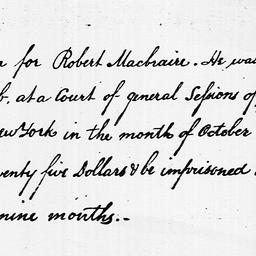 for Robert Macbraire. He was
at a Court of general Sessions of
New York in the month of October
twenty five Dollars & be imprisoned
nine months.-